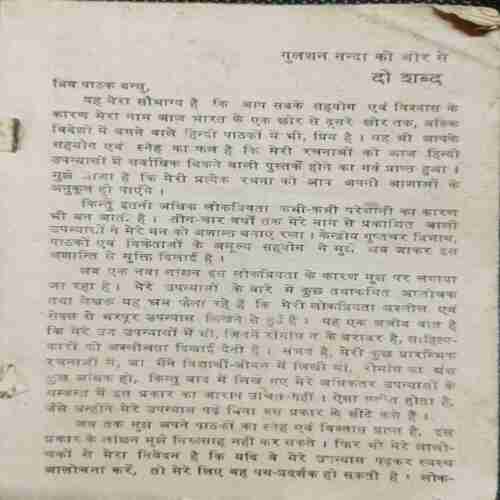 गुलशन नन्दा की ओर से
दो शब्द
प्रिय पाठक बन्धु,
यह मेरा सौभाग्य है कि आप सबके सहयोग एवं विश्वास के
कारण मेरा नाम आज भारत के एक छोर से दूसरे छोर तक, बल्कि
विदेशों में बसने वाले हिन्दी पाठकों में भी, प्रिय है । यह भी आपके
सहयोग एवं स्नेह का फल है कि मेरी रचनाओं को आज हिन्दी
उपन्यासों में सर्वाधिक बिकने वाली पुस्तकें होने का गर्व प्राप्त हुआ ।
मुझे आशा है कि मेरी प्रत्येक रचना को आप अपनी आशाओं के
अनुकूल ही पाएंगे ।
किन्तु इतनी अधिक लोकप्रियता कभी-कभी परेशानी का कारण
भी बन जाती है । तीन-चार वर्षों तक मेरे नाम से प्रकाशित जाली
उपन्यासों ने मेरे मन को अशान्त बनाए रखा । केन्द्रीय गुप्तचर विभाग,
पाठकों एवं विक्रेताओं के अमूल्य सहयोग ने मुझे, अब जाकर इस
अशान्ति से मुक्ति दिलाई है ।
अब एक नया लांछन इस लोकप्रियता के कारण मुझ पर लगाया
जा रहा है । मेरे उपन्यासों के बारे में कुछ तथाकथित आलोचक
तथा लेखक यह भ्रम फैला रहे हैं कि मेरी लोकप्रियता अश्लील एवं
सेक्स से भरपूर उपन्यास लिखने से हुई है । यह एक अजीब बात है
कि मेरे उन उपन्यासों में भी, जिनमें रोमांस न के बराबर है, साहित्य-
कारों को अश्लीलता दिखाई देती है । सम्भव है, मेरी कुछ प्रारम्भिक
रचनाओं में, जो मैंने विद्यार्थी-जीवन में लिखी थीं, रोमांस का अंश
कुछ अधिक हो, किन्तु बाद में लिखे गए मेरे अधिकतर उपन्यासों के
सम्बन्ध में इस प्रकार का आरोप उचित नहीं । ऐसा प्रतीत होता है,
जैसे उन्होंने मेरे उपन्यास पढ़े बिना इस प्रकार के छींटे कसे हैं ।
जब तक मुझे अपने पाठकों का स्नेह एवं विश्वास प्राप्त है, इस
प्रकार के लांछन मुझे निरुत्साह नहीं कर सकते । फिर भी मेरे आलो-
चकों से मेरा निवेदन है कि यदि वे मेरे उपन्यास पढ़कर स्वस्थ
आलोचना करें, तो मेरे लिए वह पथ-प्रदर्शक हो सकती है । लोक-